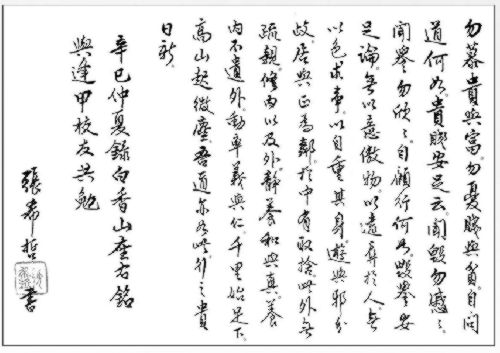 勿慕貴與富。勿憂賤與貧。自問
道何如。貴賤安足云。聞毀勿慼々。
聞譽勿欣々。自顧行何如。毀譽安
足論。無以意傲物。以遠辱於人。無
以色求事。以自重其身。遊與邪分
歧。居與正為鄰。於中有取捨。此外無
疏親。修內以及外。靜養和與真。養
內不遺外。動率義與仁。千里始足下。
高山起微塵。吾道亦如此。行之貴
日新。
辛巳仲夏錄白香山座右銘
與逢甲校友共勉
張希哲書